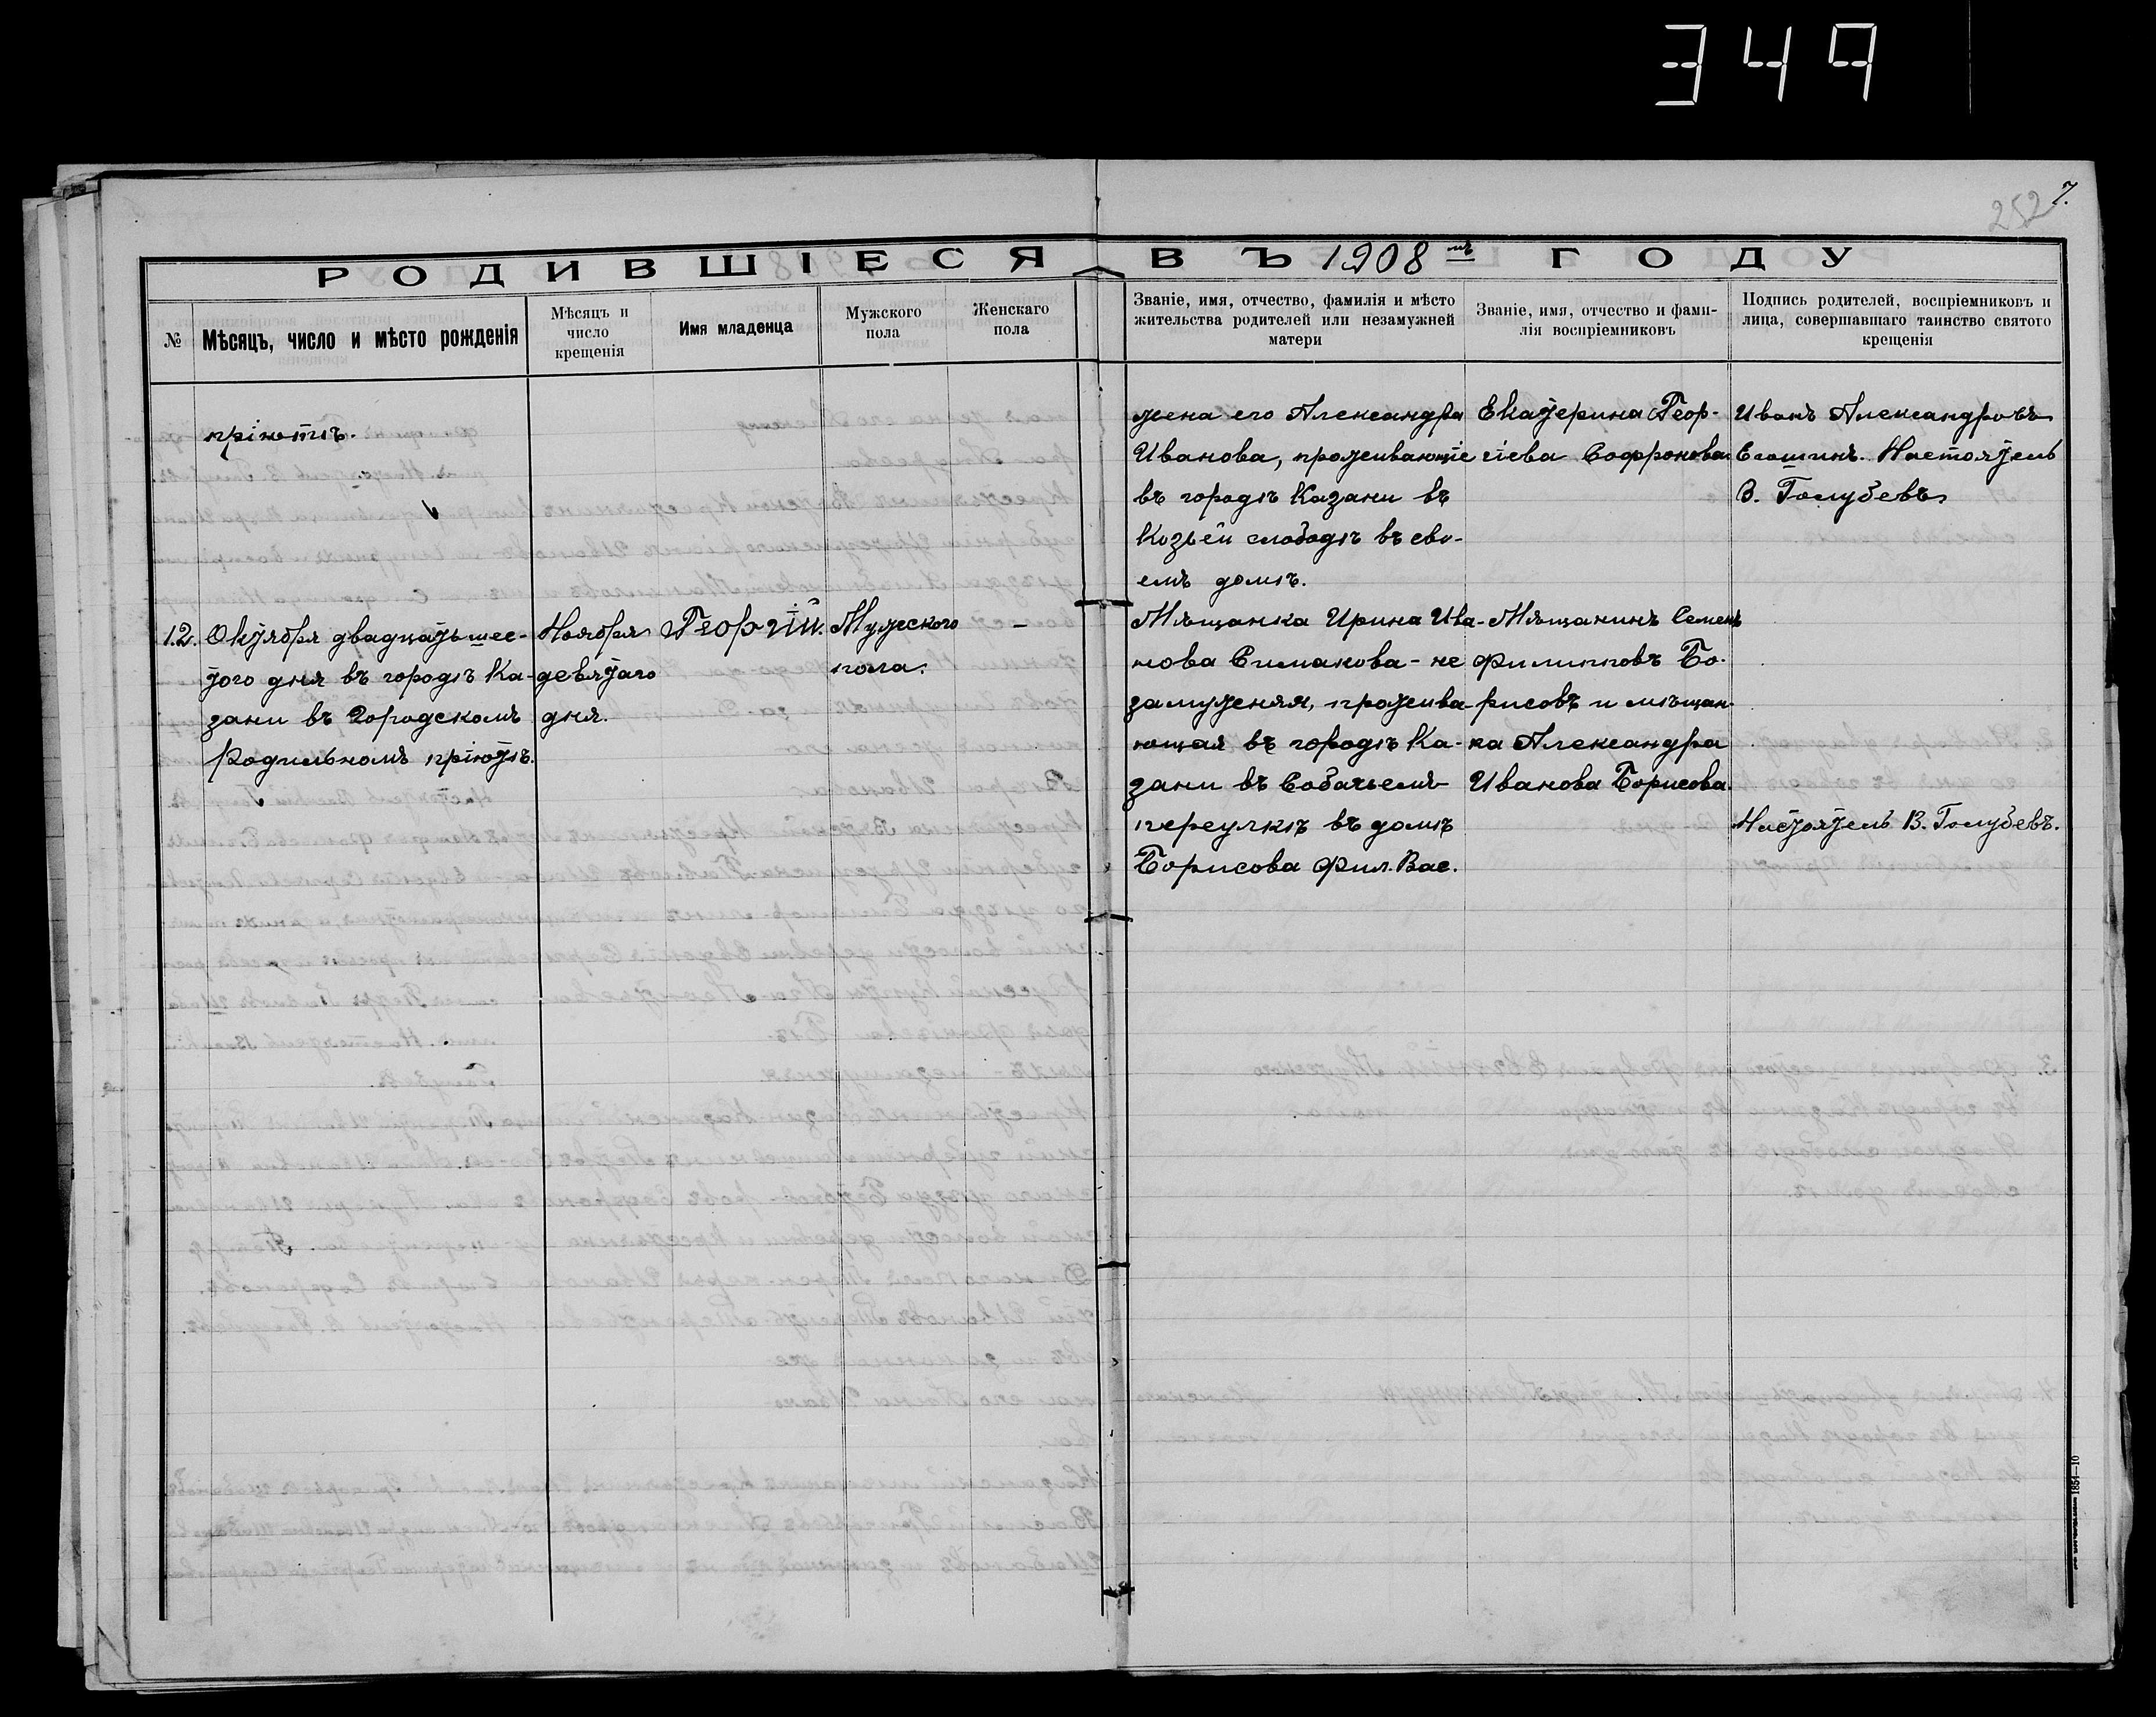 349
252
7.
РОДИВШІЕСЯ ВЪ 1908 мъ ГОДУ
№
Мѣсяцъ, число и мѣсто рожденія
Мѣсяцъ и
число
крещенія
Имя младенца
Мужского
пола
Женскаго
пола
Званіе, имя, отчество, фамилія и мѣсто
жительства родителей или незамужней
матери
Званіе, имя, отчество и фами-
лія воспріемниковъ
Подпись родителей, воспріемниковъ и
лица, совершавшаго таинство святого
крещенія
пріютѣ.
жена его Александра
Иванова, проживающіе
въ городѣ Казани въ
Козьей слободѣ въ сво-
емъ домѣ.
Екатерина Геор-
гіева Софронова
Иванъ Александровъ
Настоятель
В. Голубевъ
12.
Октября двадцать шес-
того дня въ городѣ Ка-
зани въ Городскомъ
Родильномъ пріютѣ.
Ноября
девятаго
дня.
Георгій.
Мужского
пола.
-
Мѣщанка Ирина Ива-
нова Симакова - не
замужняя, прожива-
ющая въ городѣ Ка-
зани въ Собачьемъ
переулкѣ въ домѣ
Борисова Фил. Вас.
Мѣщанинъ Семенъ
Филипповъ Бо-
рисовъ и мѣщан-
ка Александра
Иванова Борисова.
Настоятель В. Голубевъ.
1854—10